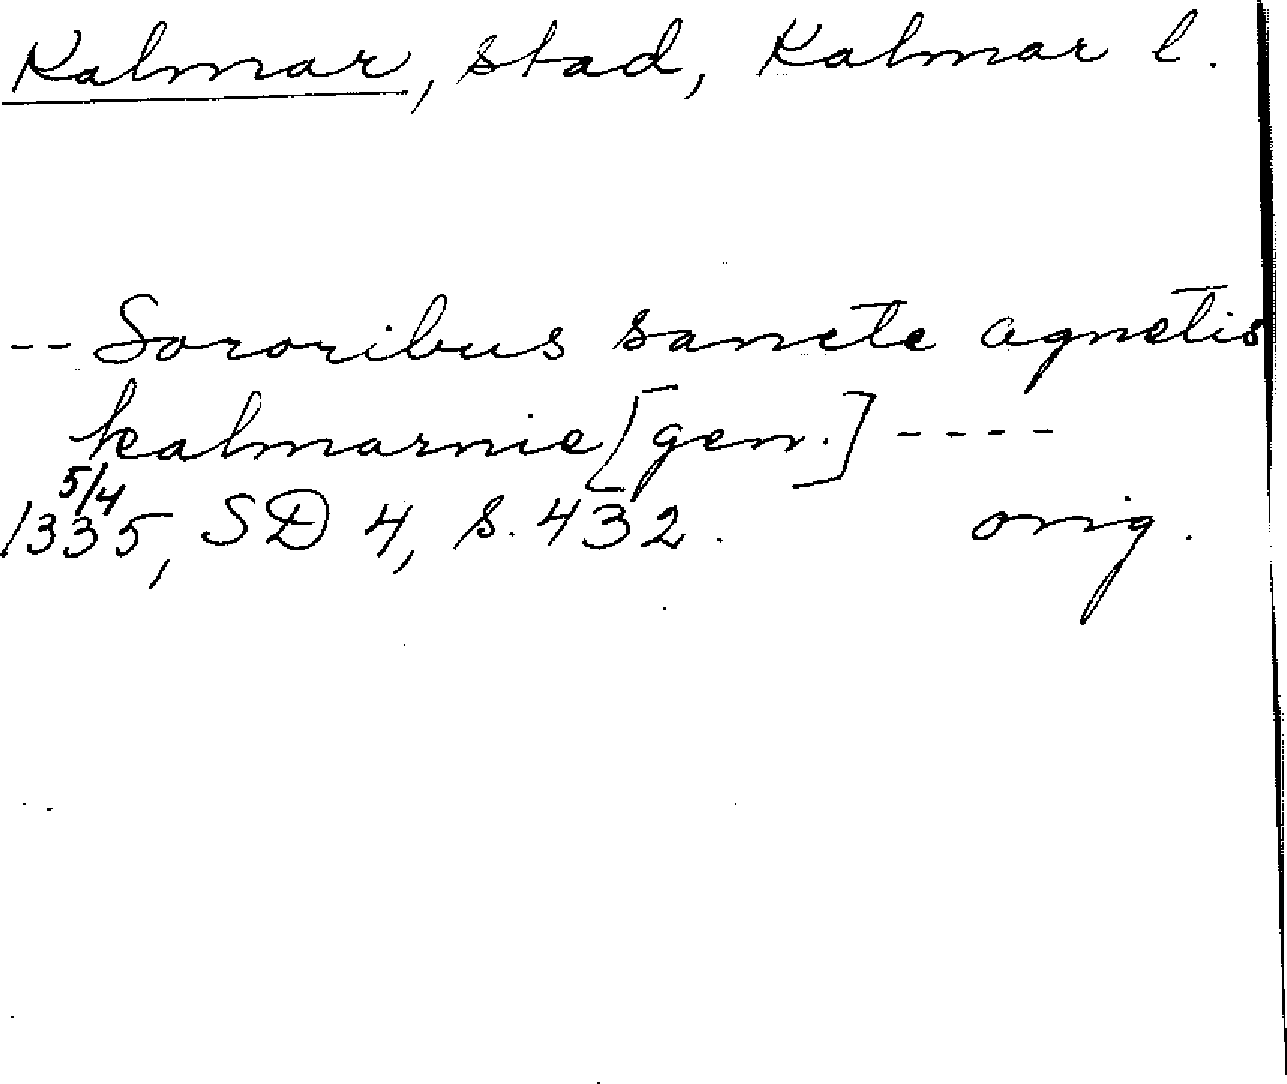 Kalmar, stad, Kalmar l.
-- Sororibus sancte agnetis
kalmarnie [gen.] ----
1335 5/4, SD 4, s. 432. orig.